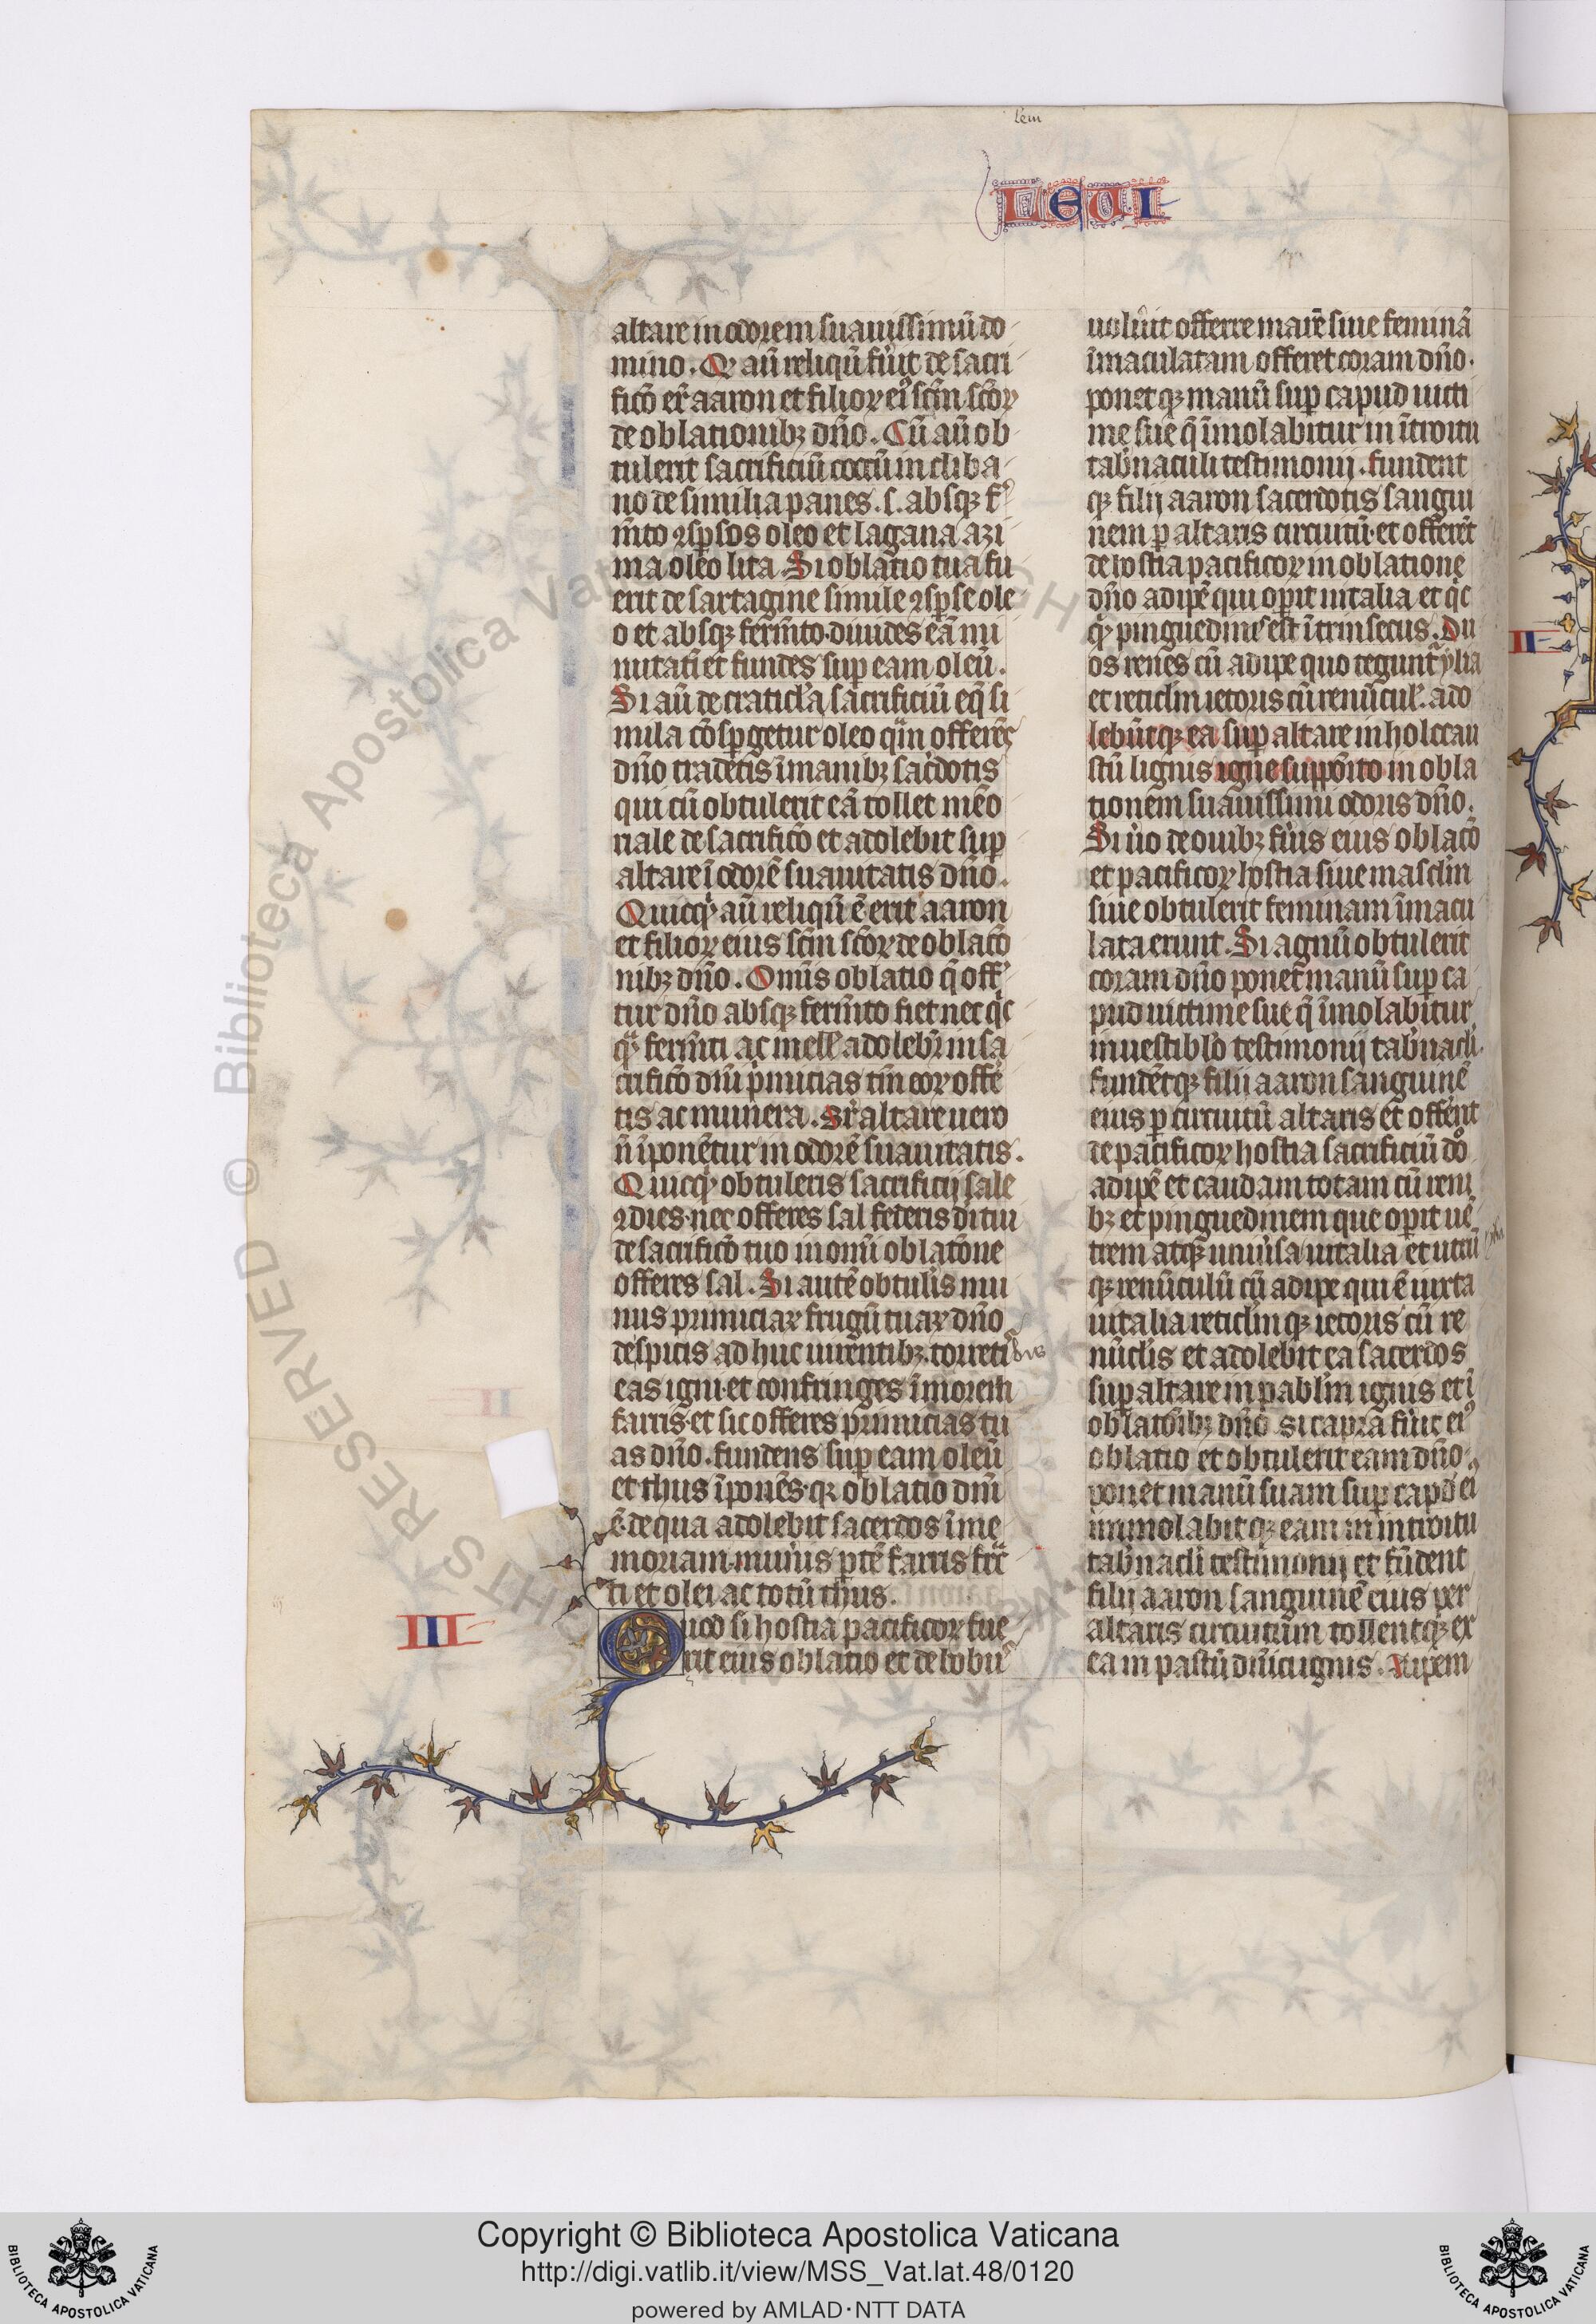 lem
LEVI
altare in odorem suauissimū do
mino. Qͩ aū reliqū fu̾it de sacri
ficō er̄ aaron et filioꝝ ei᷒ sc̄m sc̄oꝝ
de oblationibꝫ dn̄o. Cū aū ob
tulerit sacrificiū coctū in cliba
no de simila panes .s. absqꝫ f̾
m̄to ꝯsp̄sos oleo et lagana azi
ma oleo lita. Si oblatio tua fu
erit de sartagine simile ꝯsp̄se ole
o et absqꝫ ferm̄to. diuides eā mi
nutatī et fundes sup̄ eam oleū.
Si aū de craticl̄a sacrificiū eq̄ si
mila cōsp̄getur oleo qͣm offerēs
dn̄o trades ī manibꝫ sac̾dotis
qui cū obtulerit eā tollet mēo
riale de sacrificō et adolebit sup̄
altare ī odorē suauitatis dn̄o.
Quicqͩ aū reliqū ē erit aaron
et filioꝝ eius sc̄m sc̄oꝝ de oblacō
nibꝫ dn̄o. Omīs oblatio q̄ off̾
tur dn̄o absqꝫ ferm̄to fiet nec qͥc
qͣ ferm̄ti ac mell̄ adolebit̄ in sa
crificō dn̄i pͥmicias tm̄ eoꝝ offe̾
tis ac munera. Sr̄ altare uero
n̄ īponētur in odorē suauitatis.
Quicqͩ obtuleris sacrificij sale
ꝯdies. nec offeres sal federis di̾ tui
de sacrificō tuo in omī oblatōne
offeres sal. Si autē obtul̾is mu
nus primiciaꝝ frugū tuaꝝ dn̄o
de spicis ad huc uirentibꝫ. torreb̾
bis
eas igni. et confringes ī morem
farris. et sic offeres primicias tu
as dn̄o. fundens sup̄ eam oleū
et thus īponēs. qꝛ oblatio dn̄i
ē. de qua adolebit sacerdos ī me
moriam mun̾is p̄tē farris frͣc
ti et olei ac totū thus.
III
Quod si hostia pacificoꝝ fue
rit eius oblatio et de bobu᷒
uolu̾it offerre marē siue feminā
īmaculatam offeret coram dn̄o.
ponetqꝫ manū sup̄ capud uicti
me sue q̄ īmolabitur in ītroitu
tab̾naculi testimonij. fundent
qꝫ filij aaron sacerdotis sangui
nem p̄ altaris circuitū. et offerēt
de hostia pacificoꝝ in oblatione
dn̄o adipē qui op̄it uitalia et qͥc
qͩ pinguedinis est ītrinsecus. Du
os renes cū adipe quo teguntᷣ ylia
et reticl̄m iecoris cū renūcul̄. ado
lebūtqꝫ ea sup̄ altare in holocau
stū lignis igne suppōito in obla
tionem suauissimi odoris dn̄o.
Si u̾o de ouibꝫ fu̾is eius oblacō
et pacificoꝝ hostia siue mascl̄m
siue obtulerit feminam īmacu
lata erunt. Si agnū obtulerit
coram dn̄o ponet manū sup̄ ca
pud uictime sue q̄ īmolabitur
in uestibl̄o testimonij tab̾nacl̄i.
fundētqꝫ filii aaron sanguinē
eius p̄ circuitū altaris et offe̾nt
de pacificoꝝ hostia sacrificiū dō
adipē et caudam totam cū reni
bꝫ et pinguedinem que op̄it uē
trem atqꝫ uniu̾sa uitalia et utrū
qꝫ renūculū cū adipe qui ē iuxta
uitalia reticl̄mqꝫ iecoris cū re
nūcl̄is et adolebit ea sacerdos
sup̄ altare in pabl̄m ignis et ī
oblatōibꝫ dn̄o. Si capra fu̾it ei᷒
oblatio et obtulerit eam dn̄o.
ponet manū suam sup̄ capd̄ ei᷒
immolabitqꝫ eam in introitu
tab̾nacl̄i testimonij et fūdent
filij aaron sanguinē eius per
altaris circuitum tollentqꝫ ex
ea in pastū dn̄ici ignis. Adipem
II
© Biblioteca Apostolica Vaticana
RIGHTS RESERVED
Copyright © Biblioteca Apostolica Vaticana
http://digi.vatlib.it/view/MSS_Vat.lat.48/0120
powered by AMLAD·NTT DATA
BIBLIOTECA APOSTOLICA VATICANA
BIBLIOTECA APOSTOLICA VATICANA